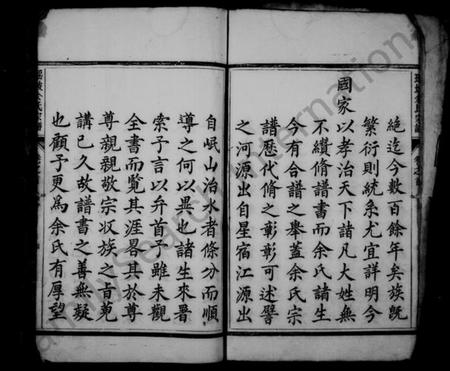 絕迄今數百余年矣族旣
繁衍則統系尤宜詳明今
國家以孝治天下諸凡大姓無
不續脩譜書而余氏諸生
今有合譜之舉蓋余氏宗
譜歷代脩之彰彰可述譬
之河源出自星宿江源出
自岷山治水者條分而順
導之何以異也諸生來署
索予言以弁首予雖未觀
全書而覽其涯畧其於尊
尊親親敬宗收族之旨蒐
講已久故譜書之善無疑
也顧予更為余氏有厚望
FamilySearch International